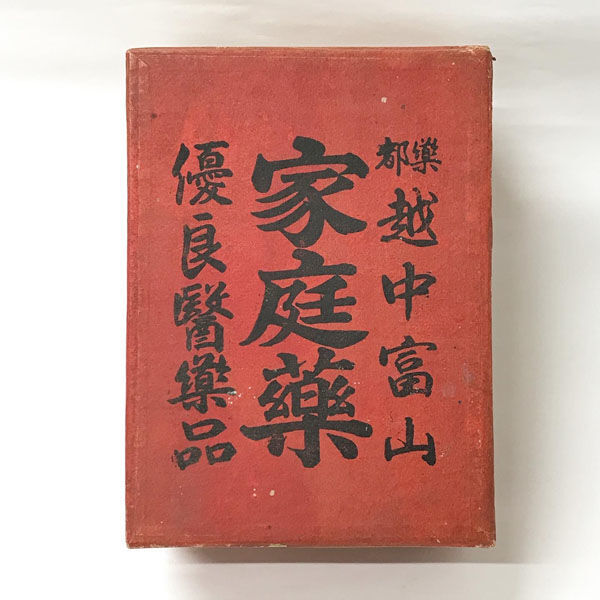 藥都
越中富山
家庭藥
優良醫藥品